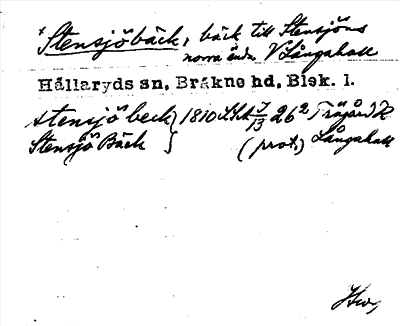 *Stensjöbäck, bäck till Stensjöns
norra ända V Långahall
Hällaryds sn, Bräkne hd, Blek. l.
stensjö beck } 1810 LSA J/13 26² Trägård R
Stensjö Bäck } (prot.) Långahall